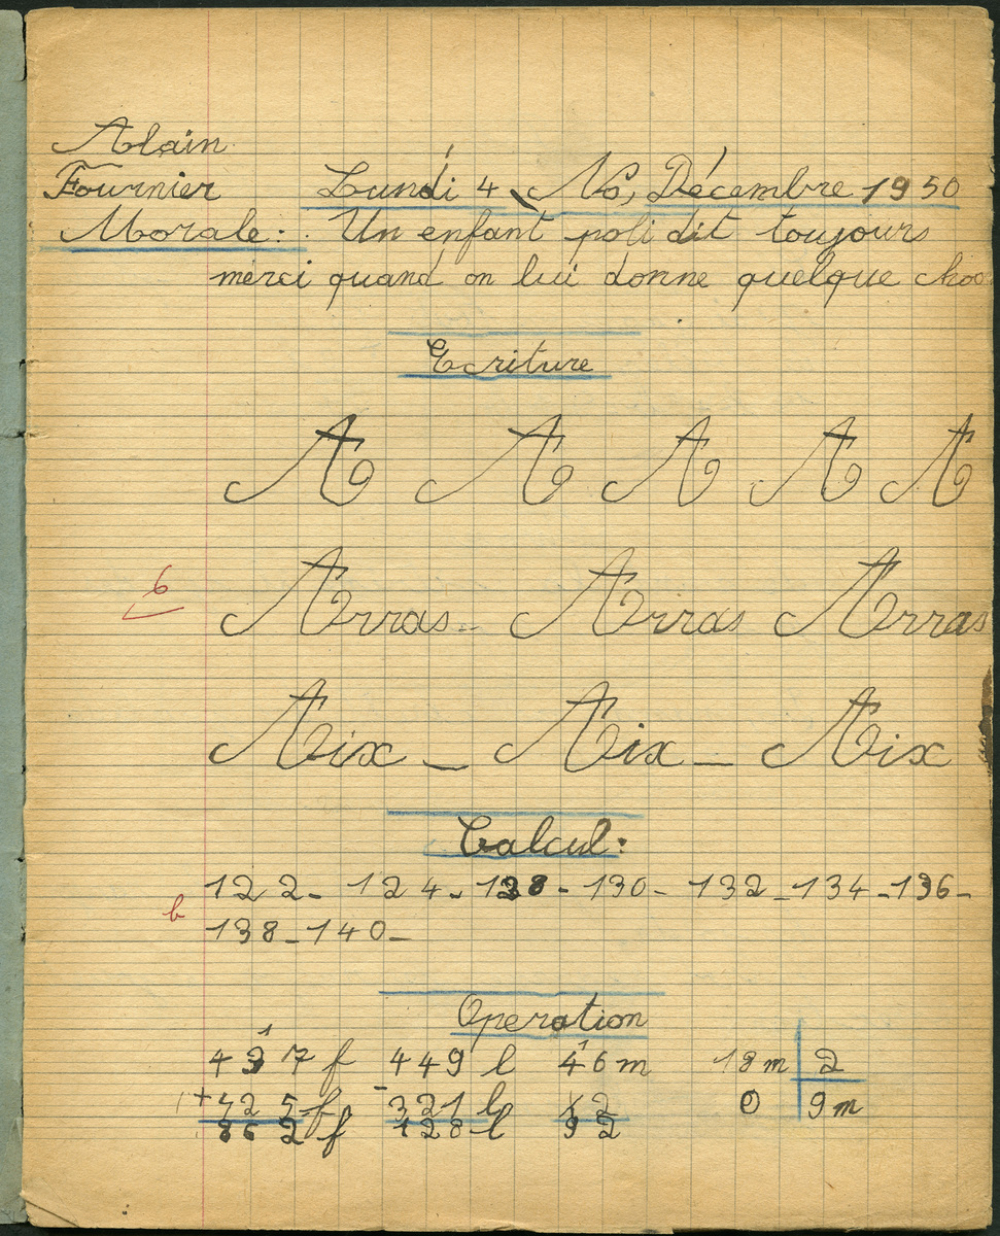 Alain
Fournier Lundi 4 No, Décembre 1950
Morale: Un enfant poli dit toujours
merci quand on lui donne quelque choo
Ecriture
A A A A A
6
Arras - Arras Arras
Aix - Aix - Aix
Calcul:
122 - 124 - 128 - 130 - 132 - 134 - 136 -
b
138 - 140 -
Operation
1 1
437 f 449 l 46 m 18 m 2
+425 f -321 l x2 0 9 m
862 f 128 l 92